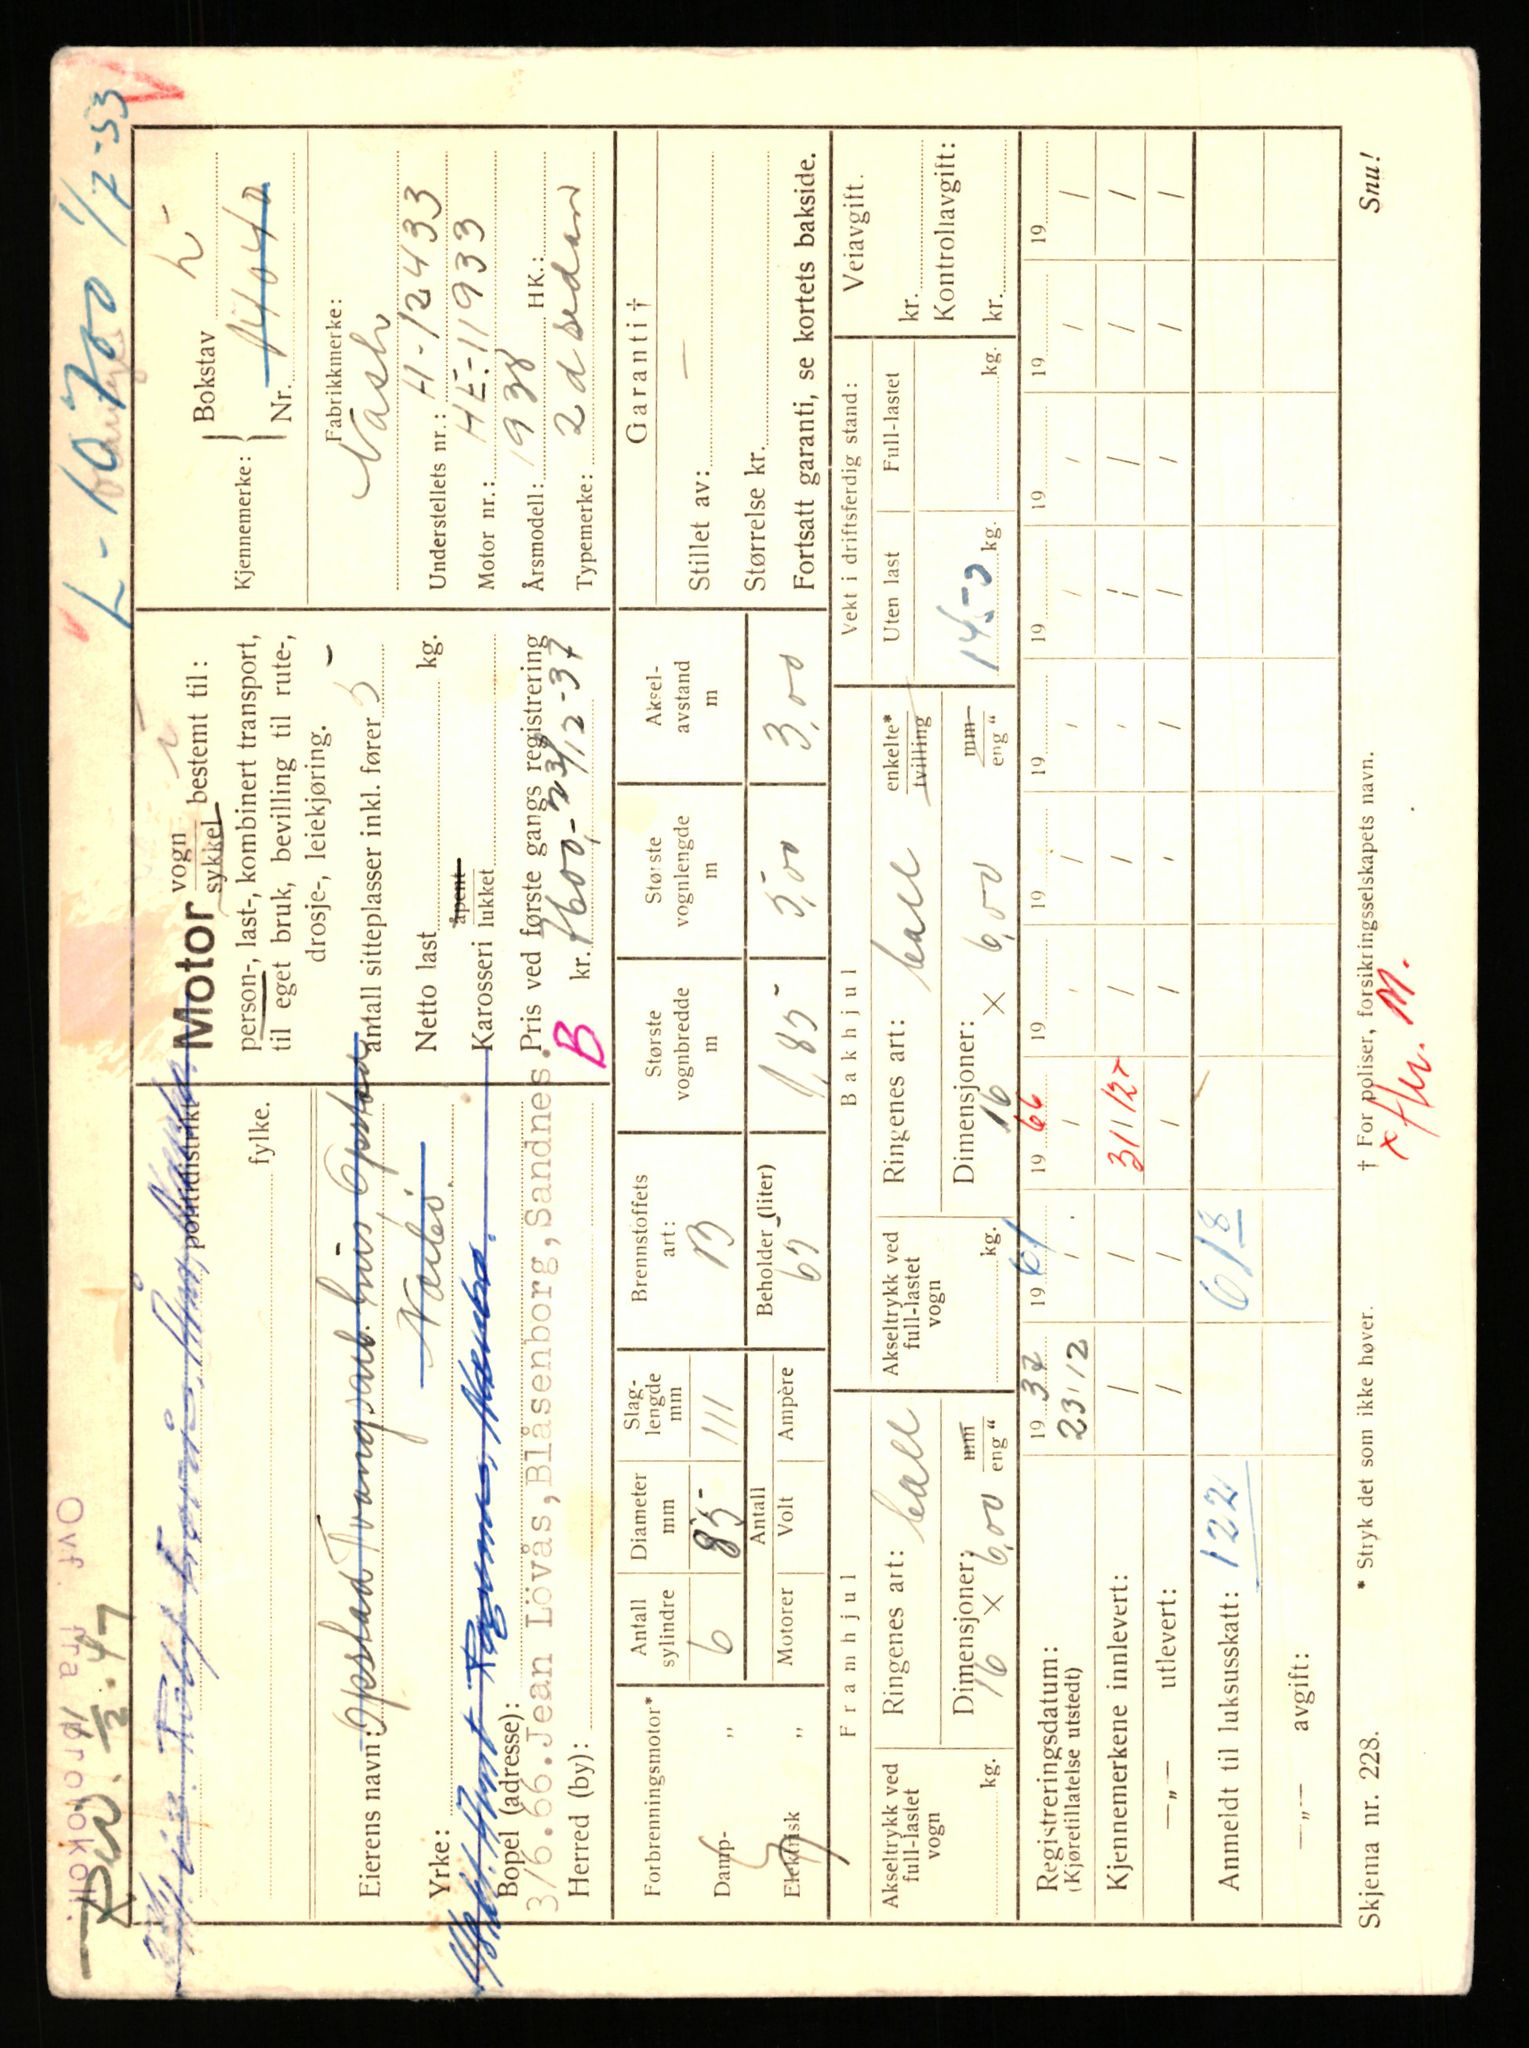 Ovf. fra protokoll.
L-60700 1/7-53
politidistrikt
fylke.
Motor vogn
sykkel bestemt til:
person-, last-, kombinert transport,
til eget bruk, bevilling til rute-,
drosje-, leiekjøring.
antall sitteplasser inkl. fører 5
Netto last kg.
Karosseri åpent lukket
Pris ved første gangs registrering
kr. 7600,- 23/12-37
B
Kjennemerke: { Bokstav L-
Nr. 14040
Fabrikkmerke:
Nash
Understellets nr.: H-12433
Motor nr.: HE-11933
Årsmodell: 1938 HK.:
Typemerke: 2 d sedan
Eierens navn: Opstad Tvangsarb. hus, Opstad
Nærbø.
Yrke:
Bopel (adresse):
3/6.66. Jean Lövås, Blåsenborg, Sandnes.
Herred (by):
Forbrenningsmotor*
Damp- „
Elektrisk „
Antall sylindre
6
Diameter mm
85
Slag-lengde mm
111
Brennstoffets art:
B
Motorer
Antall
Volt
Ampère
Beholder (liter)
Største vognbredde m
1,85
Største vognlengde m
5,00
Aksel-avstand m
3,00
Garanti †
Stillet av: —
Størrelse kr.
Fortsatt garanti, se kortets bakside.
Framhjul
Akseltrykk ved full-lastet vogn
kg.
Ringenes art: ball
Dimensjoner: mm
16 × 6,00 eng “
Bakhjul
Akseltrykk ved full-lastet vogn
kg.
Ringenes art: ball enkelte* tvilling
Dimensjoner: mm
16 × 6,00 eng “
Vekt i driftsferdig stand:
Uten last
1450 kg.
Full-lastet
kg.
Veiavgift.
kr.
Kontrollavgift:
kr.
Registreringsdatum: 1937 1961 1966 19 19 19 19 19 19 19
(Kjøretillatelse utstedt) 23/12
Kjennemerkene innlevert: / / 31/12
—„— utlevert:
Anmeldt til luksusskatt: 122 618
—„— avgift:
Skjema nr. 228. * Stryk det som ikke høver. † For poliser, forsikringsselskapets navn. Snu!